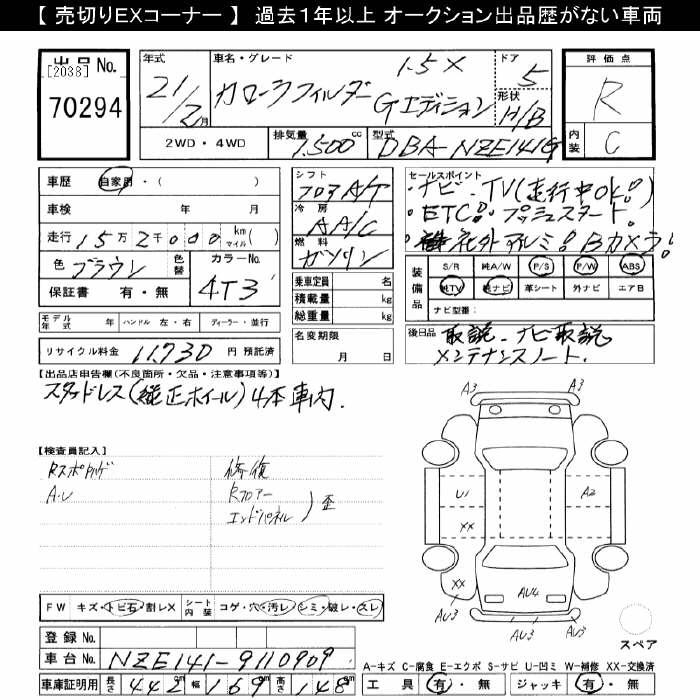 【 売切りEXコーナー 】 過去1年以上 オークション出品歴がない車両
出品 No.
[2038]
70294
年式
21/2月
車名・グレード
カローラフィルダー 1.5X
Gエディション
ドア
5
形状
H/B
評価点
R
内装
C
2WD・4WD
排気量
1,500cc
型式
DBA-NZE141G
車歴 自家用・( )
車検 年 月
走行 15万2千000 km マイル( )
色 ブラウン 色替
カラーNo.
4T3
保証書 有・無
シフト
フロアA/T
冷房
AAC
燃料
ガソリン
乗車定員 名
積載量 kg
総重量 kg
セールスポイント
・ナビ・TV(走行中OK!)
・ETC!・プッシュスタート。
・社外アルミ!Bカメラ!
装備品
S/R 純A/W P/S P/W ABS
純TV 純ナビ 革シート 外ナビ エアB
ナビ型番:
モデル年式 年 ハンドル 左・右 ディーラー・並行
名変期限 月 日
後日品 取説・ナビ取説
メンテナンスノート.
リサイクル料金 11,730 円 預託済
【出品店申告欄(不良箇所・欠品・注意事項等)】
スタッドレス(純正ホイール)4本車内.
【検査員記入】
A・U
修復
Rフロアー
エンドパネル
歪
A3 A3
U1 A2
XX
XX AU4
AU3 AU3 AU3
スペア
FW キズ・トビ石・割レX シート内装 コゲ・穴・汚レ・シミ・破レ・スレ
登録 No.
車台 No. NZE141-9110909
車庫証明用 長さ 442cm 幅 169cm 高さ 148cm
A-キズ C-腐食 E-エクボ S-サビ U-凹ミ W-補修 XX-交換済
工具 有・無 ジャッキ 有・無